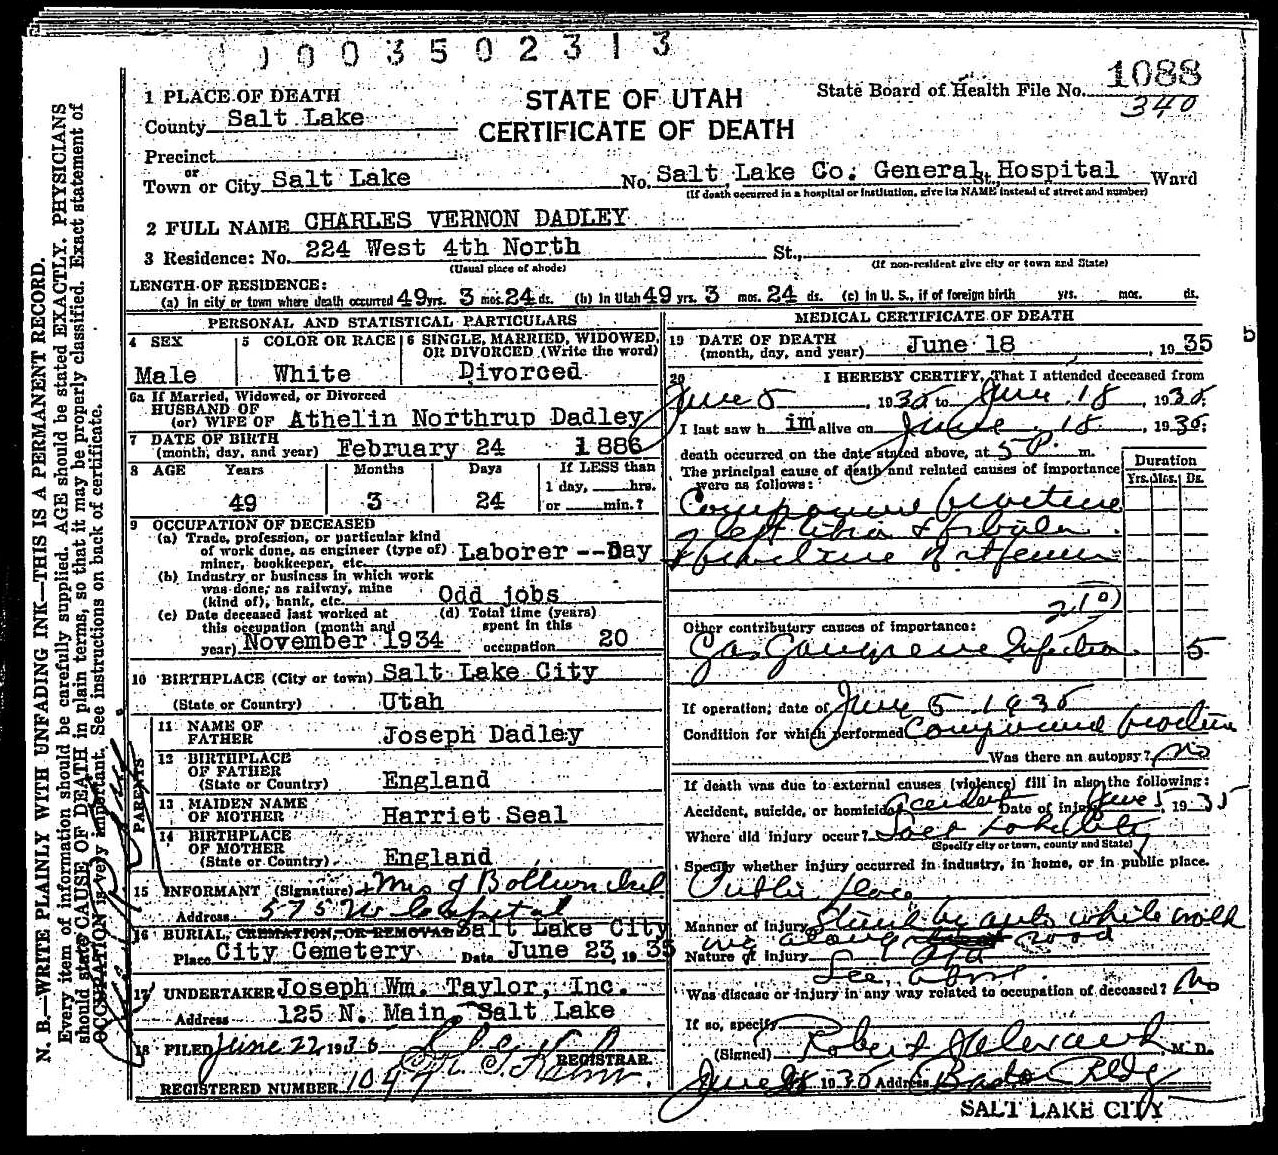 0 0 0 3 5 0 2 3 1 3
1088
340
1 PLACE OF DEATH
STATE OF UTAH
CERTIFICATE OF DEATH
State Board of Health File No.
County Salt Lake
Precinct
or
Town or City Salt Lake No. Salt Lake Co. General Hospital St., Ward
(If death occurred in a hospital or institution, give its NAME instead of street and number)
2 FULL NAME CHARLES VERNON DADLEY
3 Residence: No. 224 West 4th North St.,
(Usual place of abode) (If non-resident give city or town and State)
LENGTH OF RESIDENCE:
(a) in city or town where death occurred 49 yrs. 3 mos. 24 ds. (b) In Utah 49 yrs. 3 mos. 24 ds. (c) In U. S., if of foreign birth yrs. mos. ds.
PERSONAL AND STATISTICAL PARTICULARS
4 SEX
Male
5 COLOR OR RACE
White
6 SINGLE, MARRIED, WIDOWED, OR DIVORCED (Write the word)
Divorced
6a If Married, Widowed, or Divorced
HUSBAND OF
(or) WIFE OF Athelin Northrup Dadley
7 DATE OF BIRTH
(month, day, and year) February 24 1886
8 AGE Years Months Days If LESS than
1 day, hrs.
49 3 24 or min.?
9 OCCUPATION OF DECEASED
(a) Trade, profession, or particular kind
of work done, as engineer (type of)
miner, bookkeeper, etc. Laborer--Day
(b) Industry or business in which work
was done, as railway, mine
(kind of), bank, etc. Odd jobs
(c) Date deceased last worked at
this occupation (month and
year) November 1934
(d) Total time (years)
spent in this
occupation 20
10 BIRTHPLACE (City or town) Salt Lake City
(State or Country) Utah
PARENTS
11 NAME OF
FATHER Joseph Dadley
12 BIRTHPLACE
OF FATHER
(State or Country) England
13 MAIDEN NAME
OF MOTHER Harriet Seal
14 BIRTHPLACE
OF MOTHER
(State or Country) England
15 INFORMANT (Signature) Mrs J
Address 575 W Capital
16 BURIAL, CREMATION, OR REMOVAL Salt Lake City
Place City Cemetery Date June 23, 1935
17 UNDERTAKER Joseph Wm. Taylor, Inc.
Address 125 N. Main, Salt Lake
18 FILED June 22, 1935
REGISTRAR.
REGISTERED NUMBER 1047
MEDICAL CERTIFICATE OF DEATH
19 DATE OF DEATH
(month, day, and year) June 18, 1935
20 I HEREBY CERTIFY, That I attended deceased from
June 5, 1935 to June 18, 1935.
I last saw him alive on June 18, 1935;
death occurred on the date stated above, at 5 P. m.
The principal cause of death and related causes of importance
were as follows:
Duration
Yrs. Mos. Ds.
Compound fracture
of left tibia & fibula
Fracture of rt femur
210
Other contributory causes of importance:
Gas Gangrene Infection 5
If operation, date of June 5 1935
Condition for which performed Compound fracture
Was there an autopsy? No
If death was due to external causes (violence) fill in also the following:
Accident, suicide, or homicide Accident Date of injury June 5 1935
Where did injury occur? Salt Lake City
(Specify city or town, county and State)
Specify whether injury occurred in industry, in home, or in public place.
Public place
Manner of injury Struck by auto while walk
ing along road
Nature of injury
See above.
Was disease or injury in any way related to occupation of deceased? No
If so, specify
(Signed) Robert M. D.
June 1935 Address Boston Bldg
SALT LAKE CITY
N. B.—WRITE PLAINLY WITH UNFADING INK—THIS IS A PERMANENT RECORD.
Every item of information should be carefully supplied. AGE should be stated EXACTLY. PHYSICIANS
should state CAUSE OF DEATH in plain terms, so that it may be properly classified. Exact statement of
OCCUPATION is very important. See instructions on back of certificate.